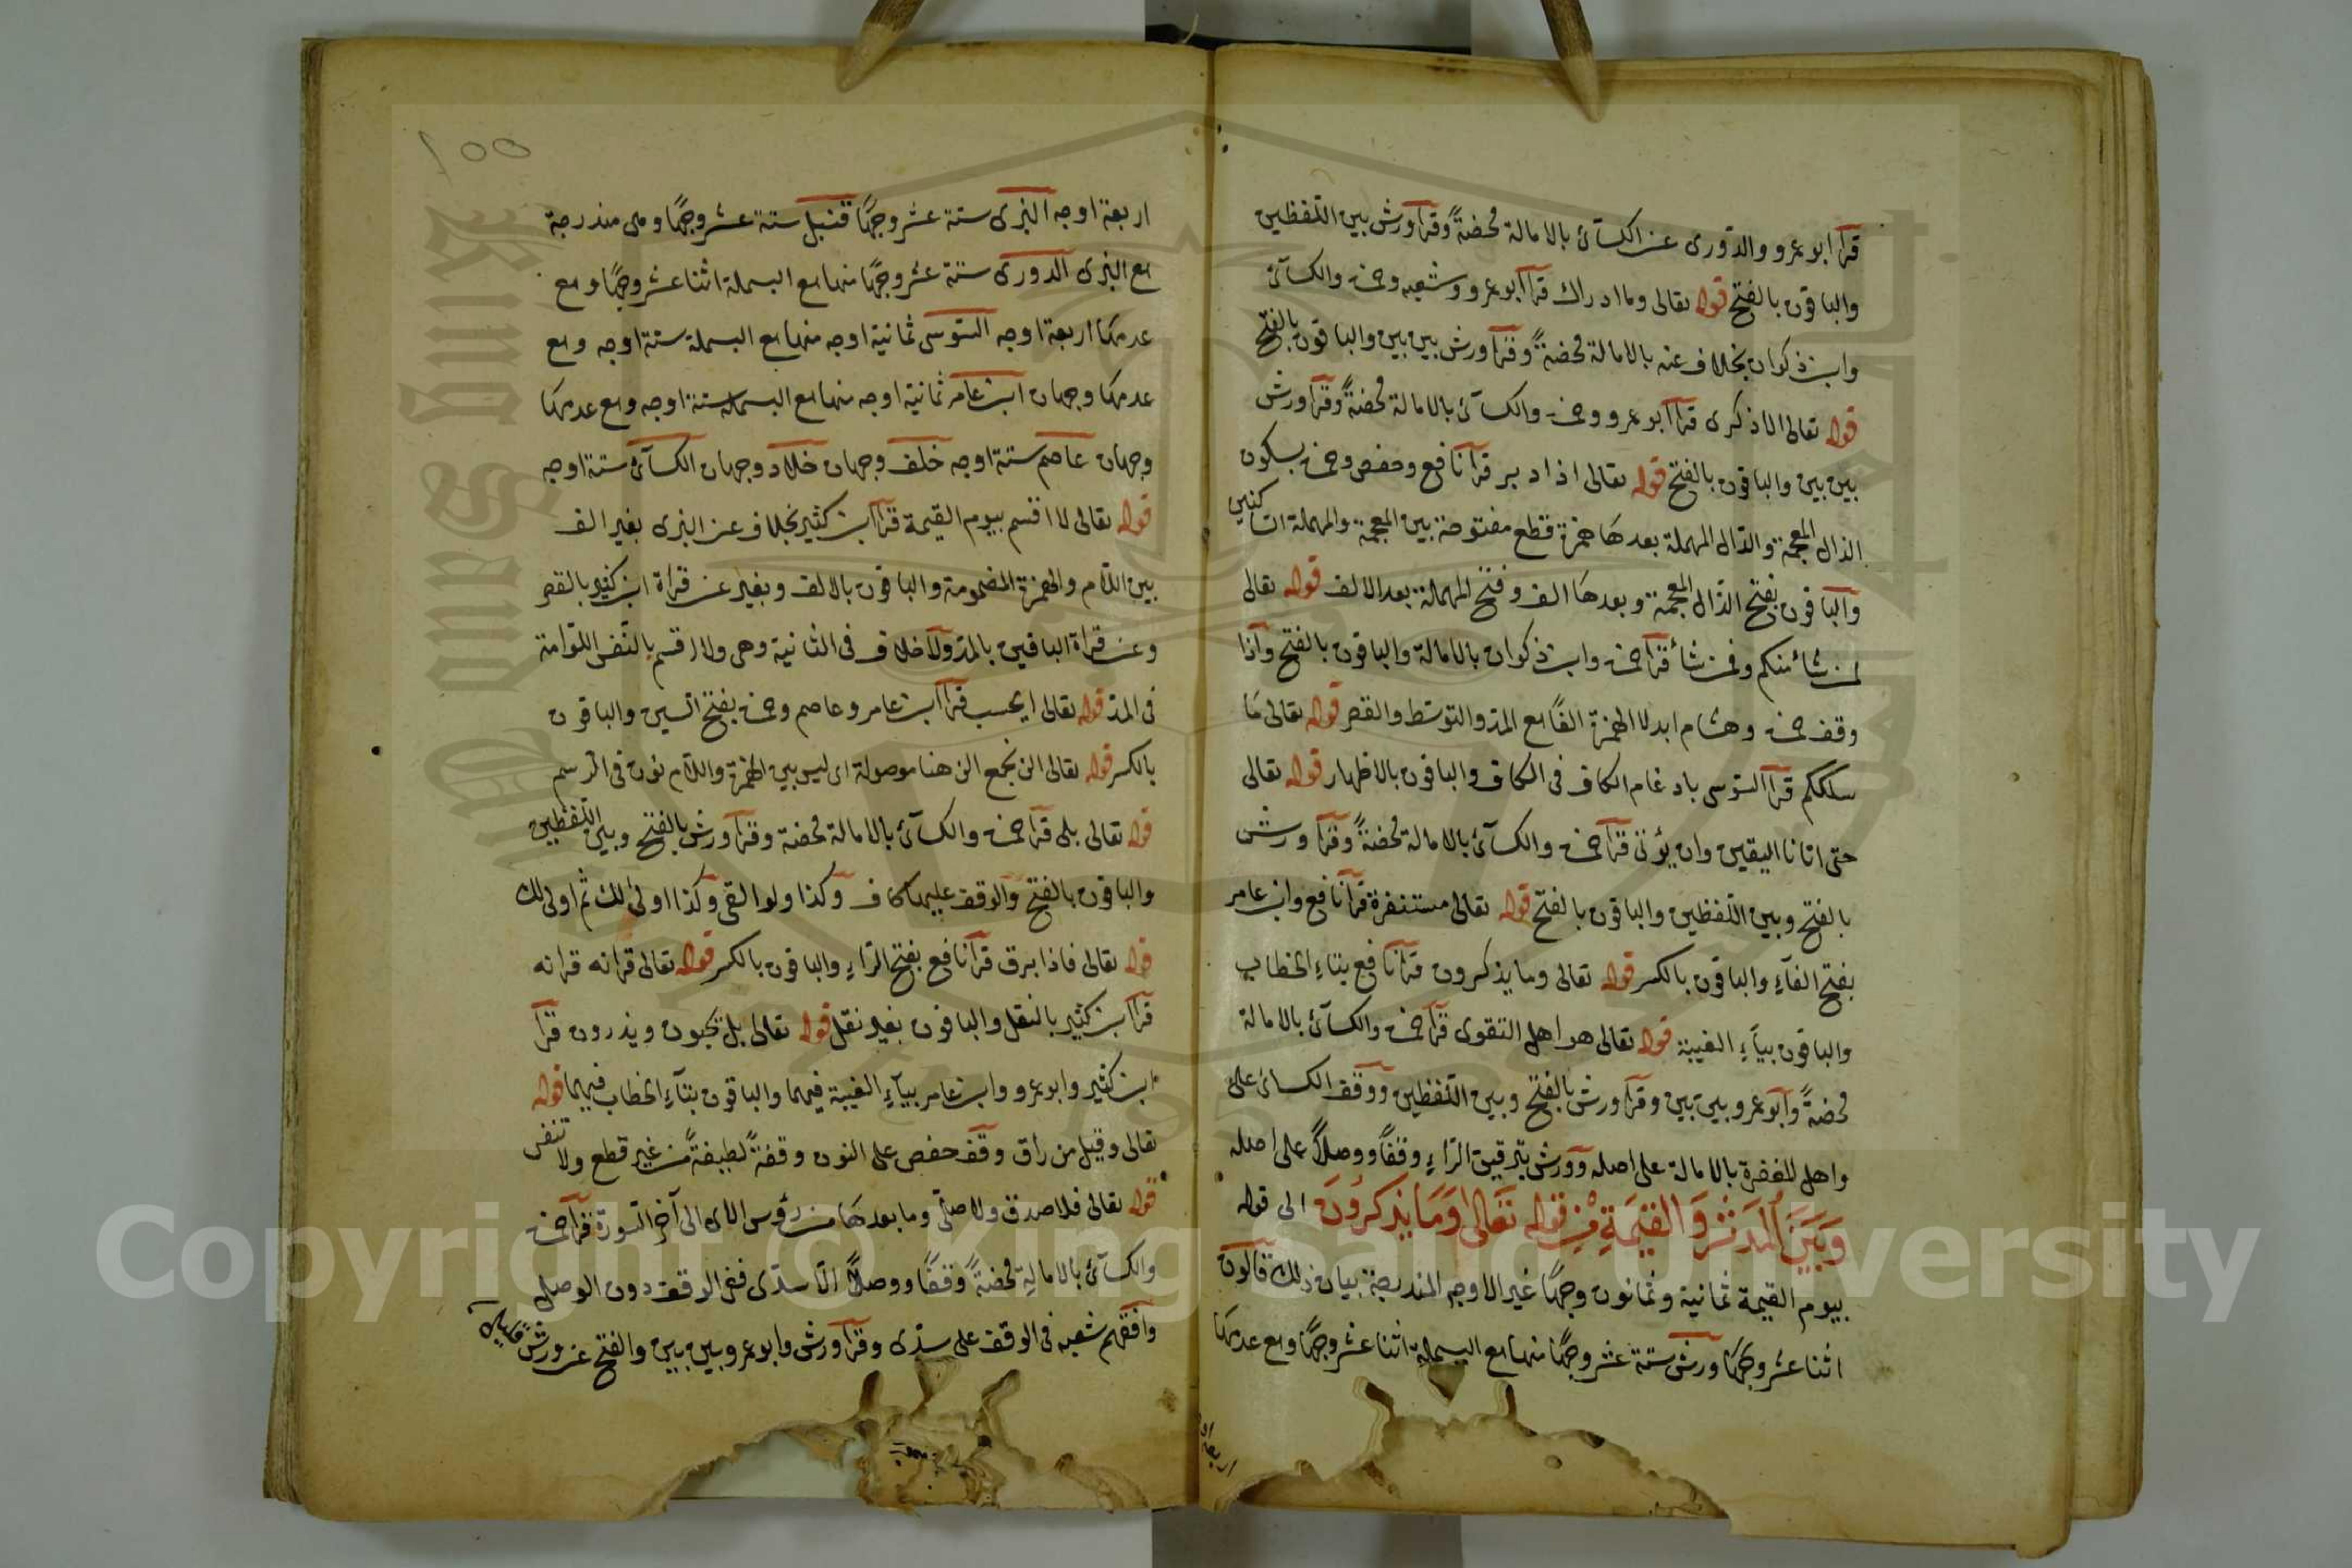 قرأ ابو عمرو والدّورى عن الكسآئ بالامالة محضةً وقرأ ورش بين اللّفظين
والباقون بالفتح قوله تعالى وما ادراك قرأ ابو عمرو وشعبه وحمزه والكسآئ
وابن ذكوان بخلاف عنه بالامالة محضةً وقرأ ورش بين بين والباقون بالفتح
قوله تعالى الا ذكرى قرأ ابو عمرو وحمزه والكسآئ بالامالة محضةً وقرأ ورش
بين بين والباقون بالفتح قوله تعالى اذ ادبر قرأ نافع وحفص وحمزه بسكون
الذال المعجمة والدّال المهملة بعدها همزة قطع مفتوحة بين المعجمة والمهملة الساكنين
والباقون بفتح الذّال المعجمة وبعدها الف وفتح المهملة بعد الالف قوله تعالى
لمن شاء منكم وفمن شاء قرأ حمزه وابن ذكوان بالامالة والباقون بالفتح واذا
وقف حمزه وهشام ابدلا الهمزة الفًا مع المدّ والتوسّط والقصر قوله تعالى مَا
سلككم قرأ السّوسى بادغام الكاف فى الكاف والباقون بالاظهار قوله تعالى
حتى اتانا اليقين وان يؤتى قرأ حمزه والكسآئ بالامالة محضةً وقرأ ورش
بالفتح وبين اللّفظين والباقون بالفتح قوله تعالى مستنفرة قرأ نافع وابن عامر
بفتح الفآءِ والباقون بالكسر قوله تعالى وما يذكرون قرأ نافع بتاءِ الخطاب
والباقون بيآءِ الغيبة قوله تعالى هو اهل التقوى قرأ حمزه والكسآئ بالامالة
محضةً وابو عمرو بين بين وقرأ ورش بالفتح وبين اللّفظين ووقف الكسائ على
واهل المغفرة بالامالة على اصله وورش بترقيق الرّاءِ وقفًا ووصلًا على اصله
وَبَيْنَ المُدَثِّرِ وَالقِيٰمَةِ مِنْ قوله تَعَالىٰ وَمَا يَذكرُونَ الى قوله
بيوم القيمة ثمانية وثمانون وجهًا غير الاوجه المندرجة بيان ذلك قالون
اثنا عشر وجهًا ورش ستة عشر وجهًا منها مع البسملة اثنا عشر وجهًا ومع عدمهَا
اربعة او
١٥٥
اربعة اوجه البزى ستة عشر وجهًا قنبل ستة عشر وجهًا وهى مندرجة
مع البزى الدورى ستة عشر وجهًا منها مع البسملة اثنا عشر وجهًا ومع
عدمها اربعة اوجه السّوسى ثمانية اوجه منها مع البسملة ستة اوجه ومع
عدمها وجهان ابن عامر ثمانية اوجه منها مع البسملة ستة اوجه ومع عدمها
وجهان عاصم ستة اوجه خلف وجهان خلاد وجهان الكسآئ ستة اوجه
قوله تعالى لا اقسم بيوم القيمة قرأ ابن كثير بخلاف عن البزى بغير الف
بين اللّام والهمزة المضمومة والباقون بالالف وبغير عن قراة ابن كثير بالقصر
وعن قراة الباقين بالمدّ ولا خلاف فى الثانية وهى ولا اقسم بالنّفس اللّوامة
فى المدّ قوله تعالى ايحسب قرأ ابن عامر وعاصم وحمزه بفتح السّين والباقون
بالكسر قوله تعالى الن نجمع الن هنا موصولة اى ليس بين الهمزة واللّام نون فى الرّسم
قوله تعالى بلى قرأ حمزه والكسآئ بالامالة محضة وقرأ ورش بالفتح وبين اللّفظين
والباقون بالفتح والوقف عليها كاف وكذا ولو القى وكذا اولى لك ثم اولى لك
قوله تعالى فاذا برق قرأ نافع بفتح الرّاءِ والباقون بالكسر قوله تعالى قرانه قرانه
قرأ ابن كثير بالنقل والباقون بغير نقل قوله تعالى بل تحبون ويذرون قرأ
ابن كثير وابو عمرو وابن عامر بيآءِ الغيبة فيهما والباقون بتآءِ الخطاب فيهما قوله
تعالى وقيل من راق وقف حفص على النون وقفةً لطيفةً من غير قطع ولا تنفس
قوله تعالى فلا صدق ولا صلّى وما بعدها من رؤس الاى الى آخر السّورة قرأ حمزه
والكسآئ بالامالةِ محضةً وقفًا ووصلًا الّا سدًى ففى الوقف دون الوصل
وافقهم شعبه فى الوقف على سدًى وقرأ ورش وابو عمرو بين بين والفتح عن ورش قليل
Copyright © King Saud University
King Saud University
1957